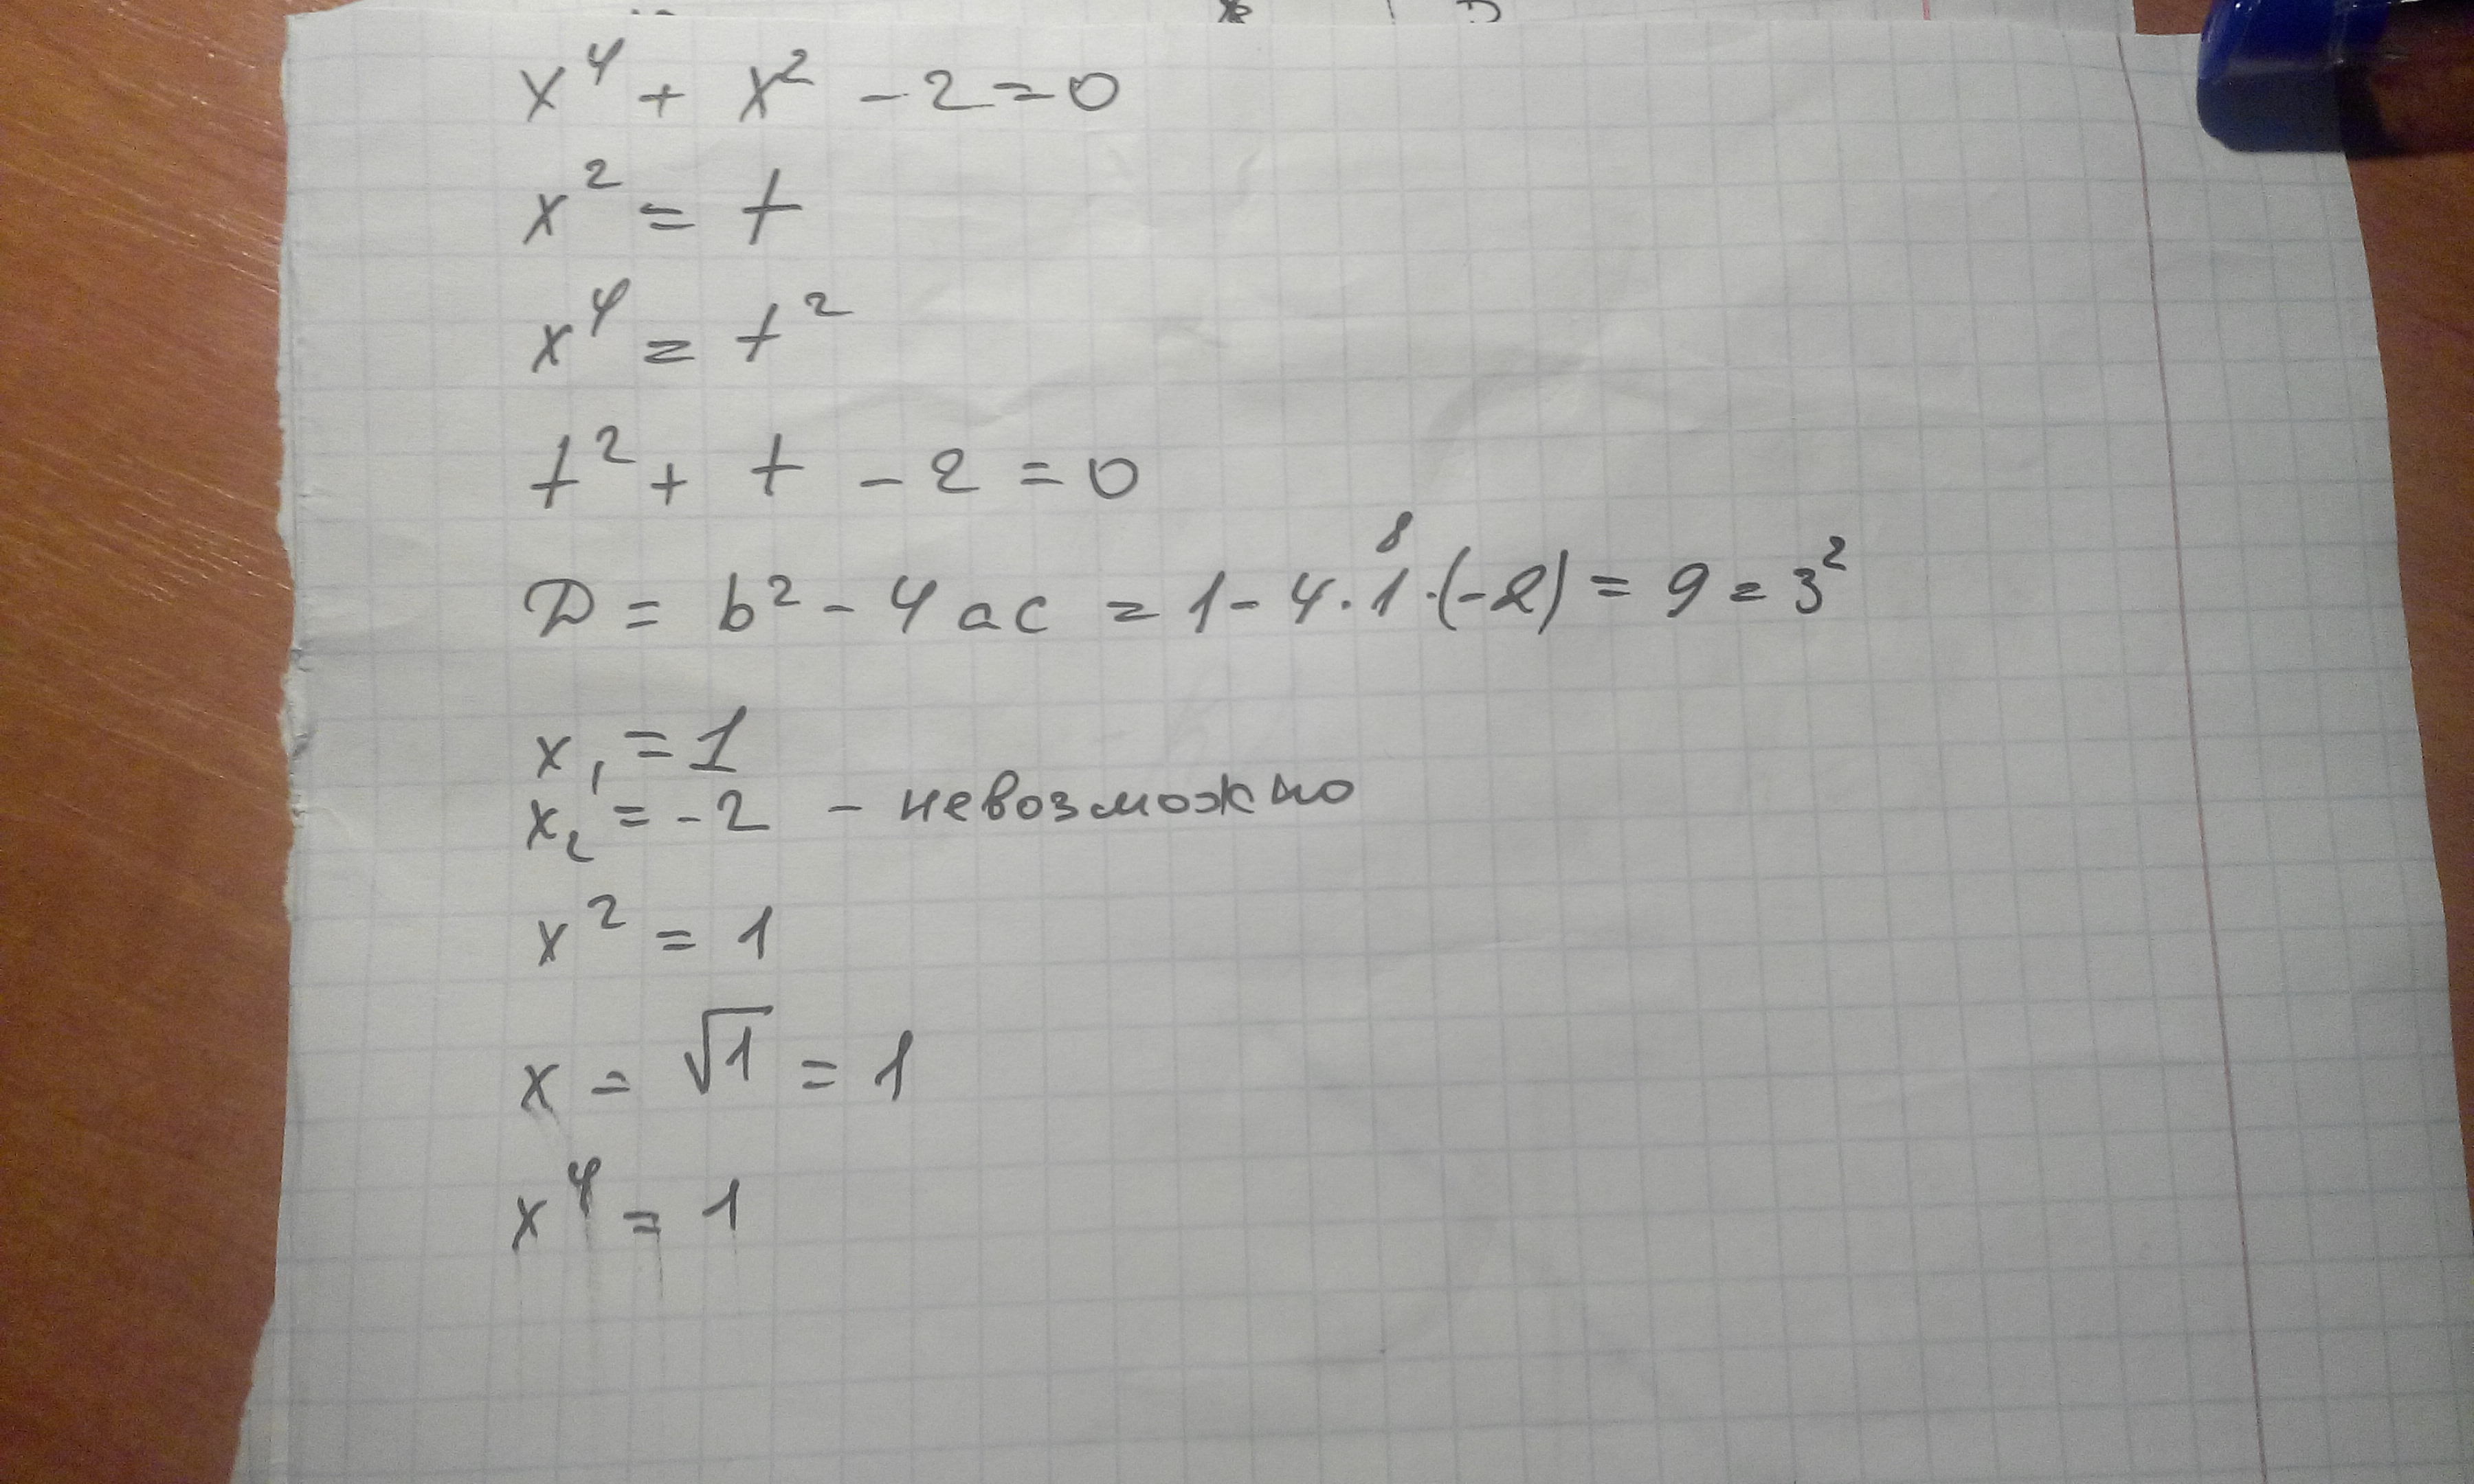 x⁴ + x² - 2 = 0
x² = t
x⁴ = t²
t² + t - 2 = 0
8
D = b² - 4ac = 1 - 4·1·(-2) = 9 = 3²
x₁ = 1
x₂ = -2 - невозможно
x² = 1
x = √1 = 1
x⁴ = 1